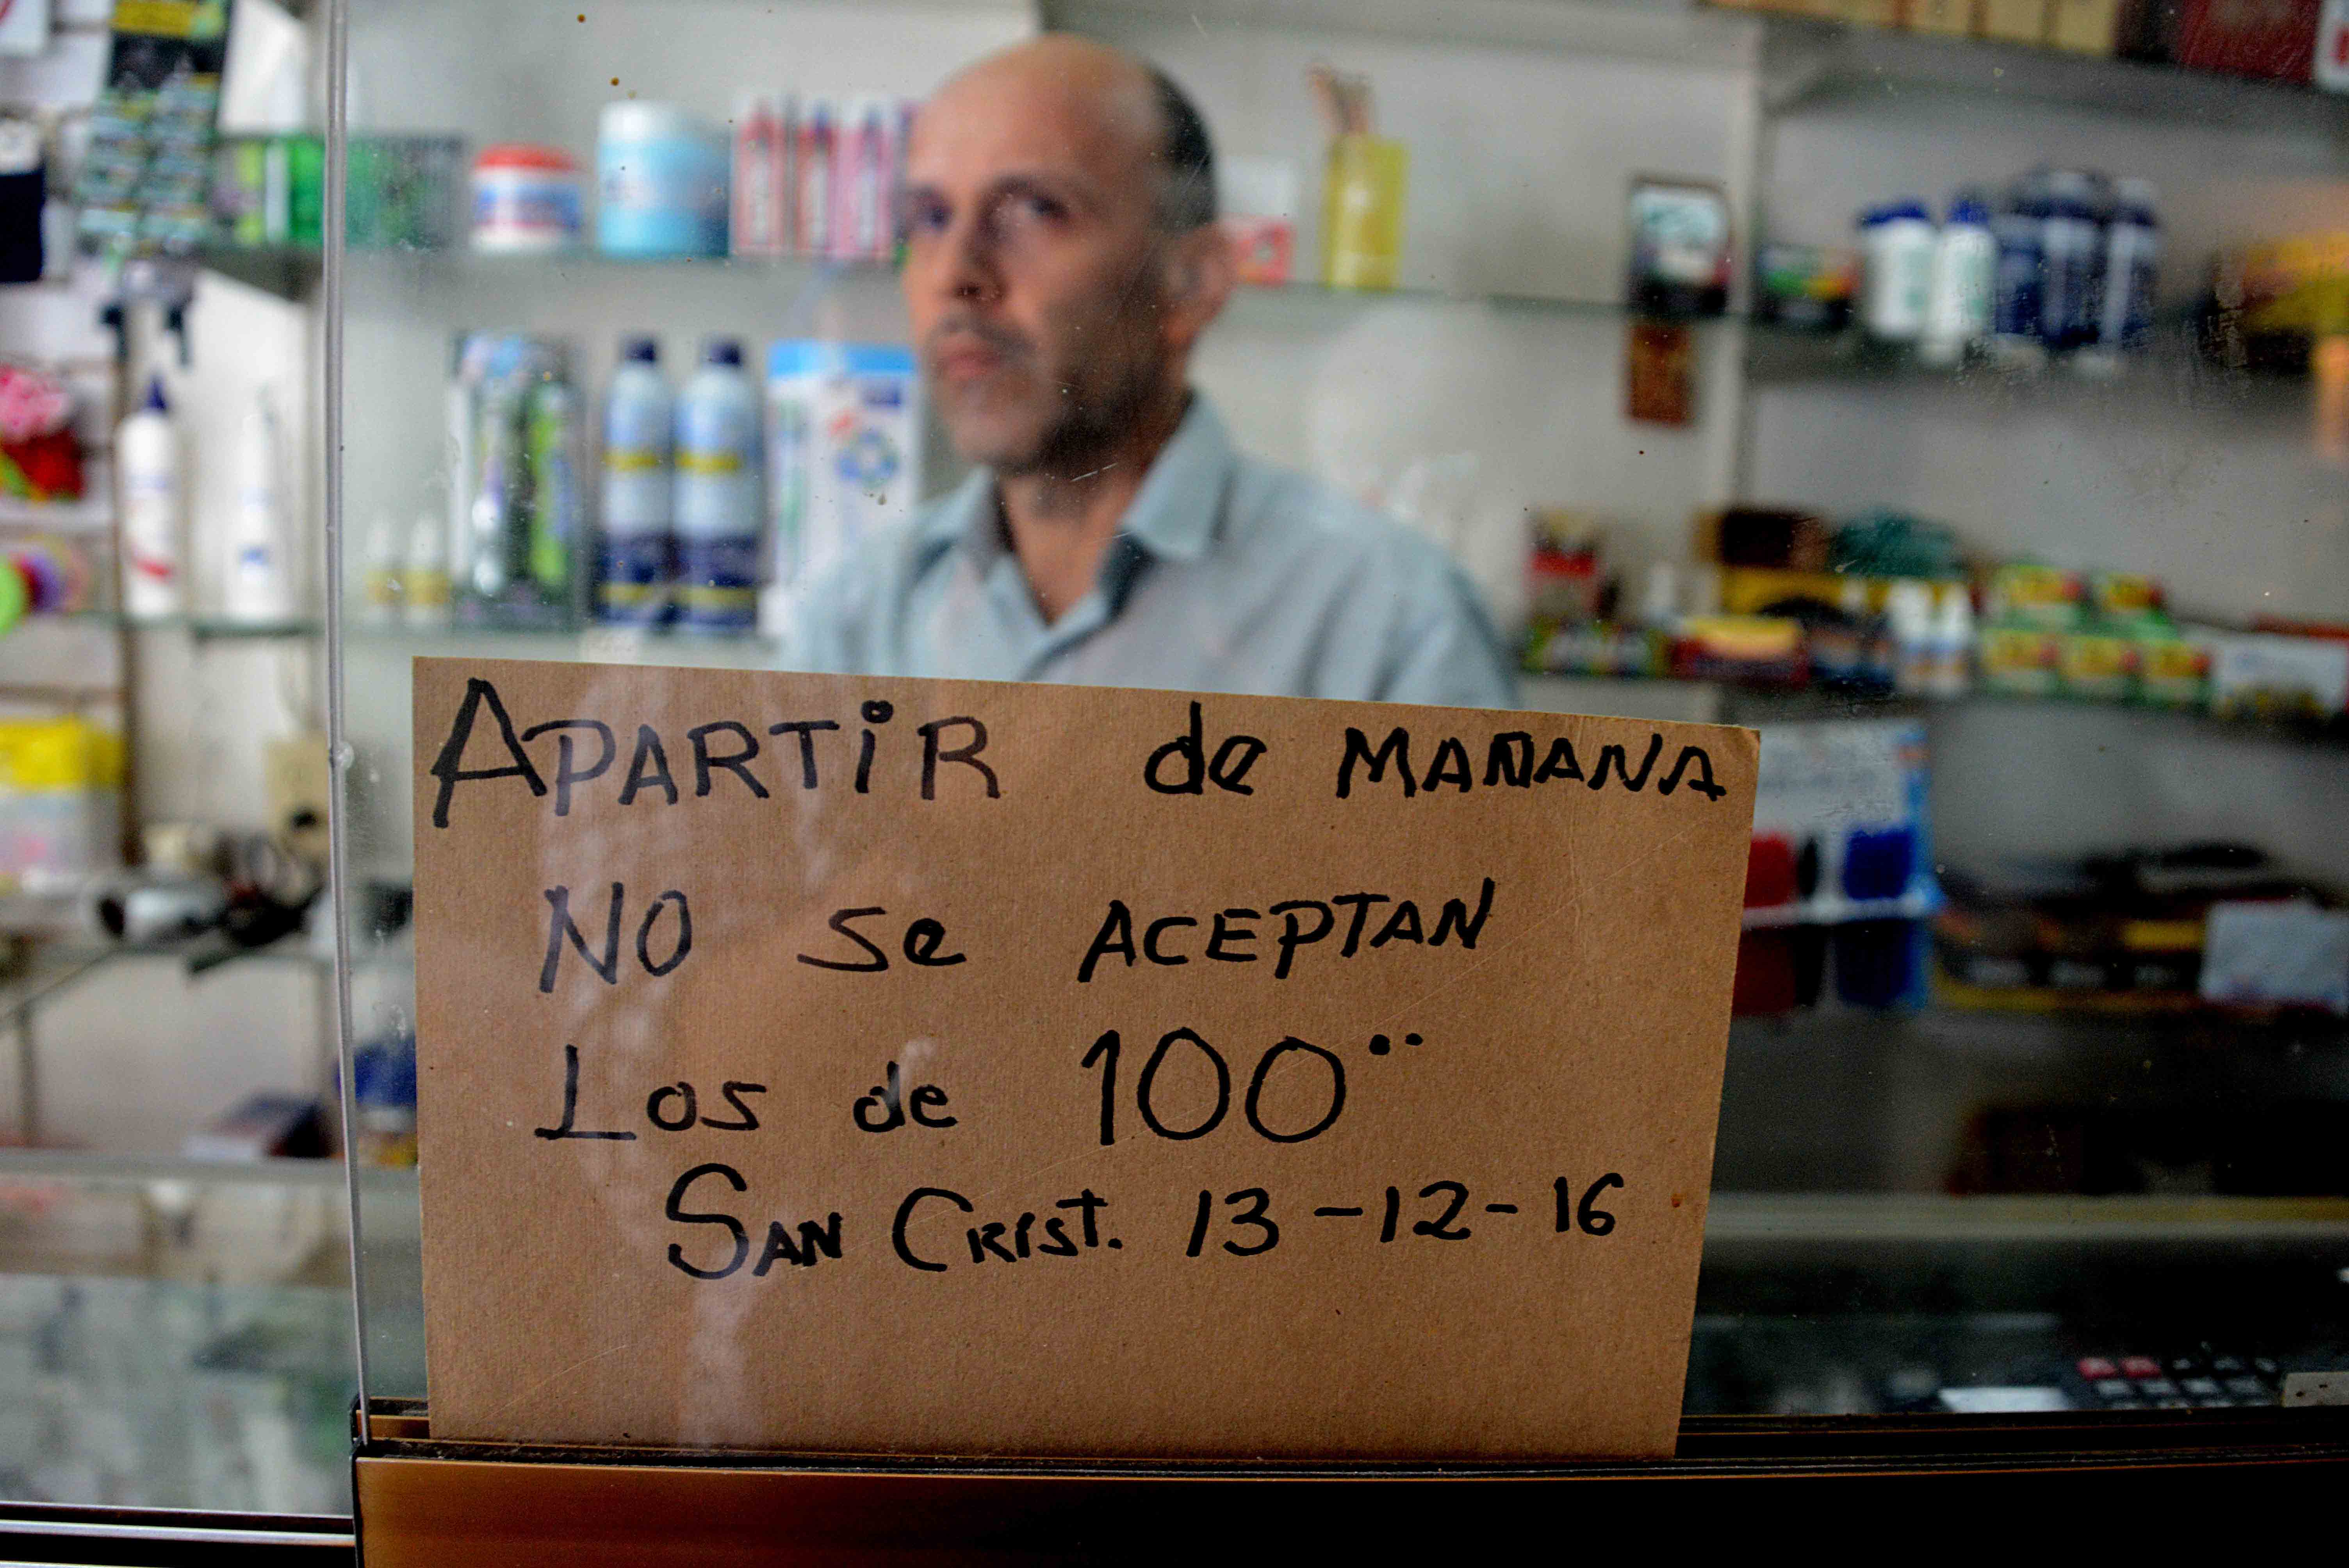 APARTiR de MAÑANA
NO Se ACEPTAN
Los de 100¨
SAN CRIST. 13-12-16